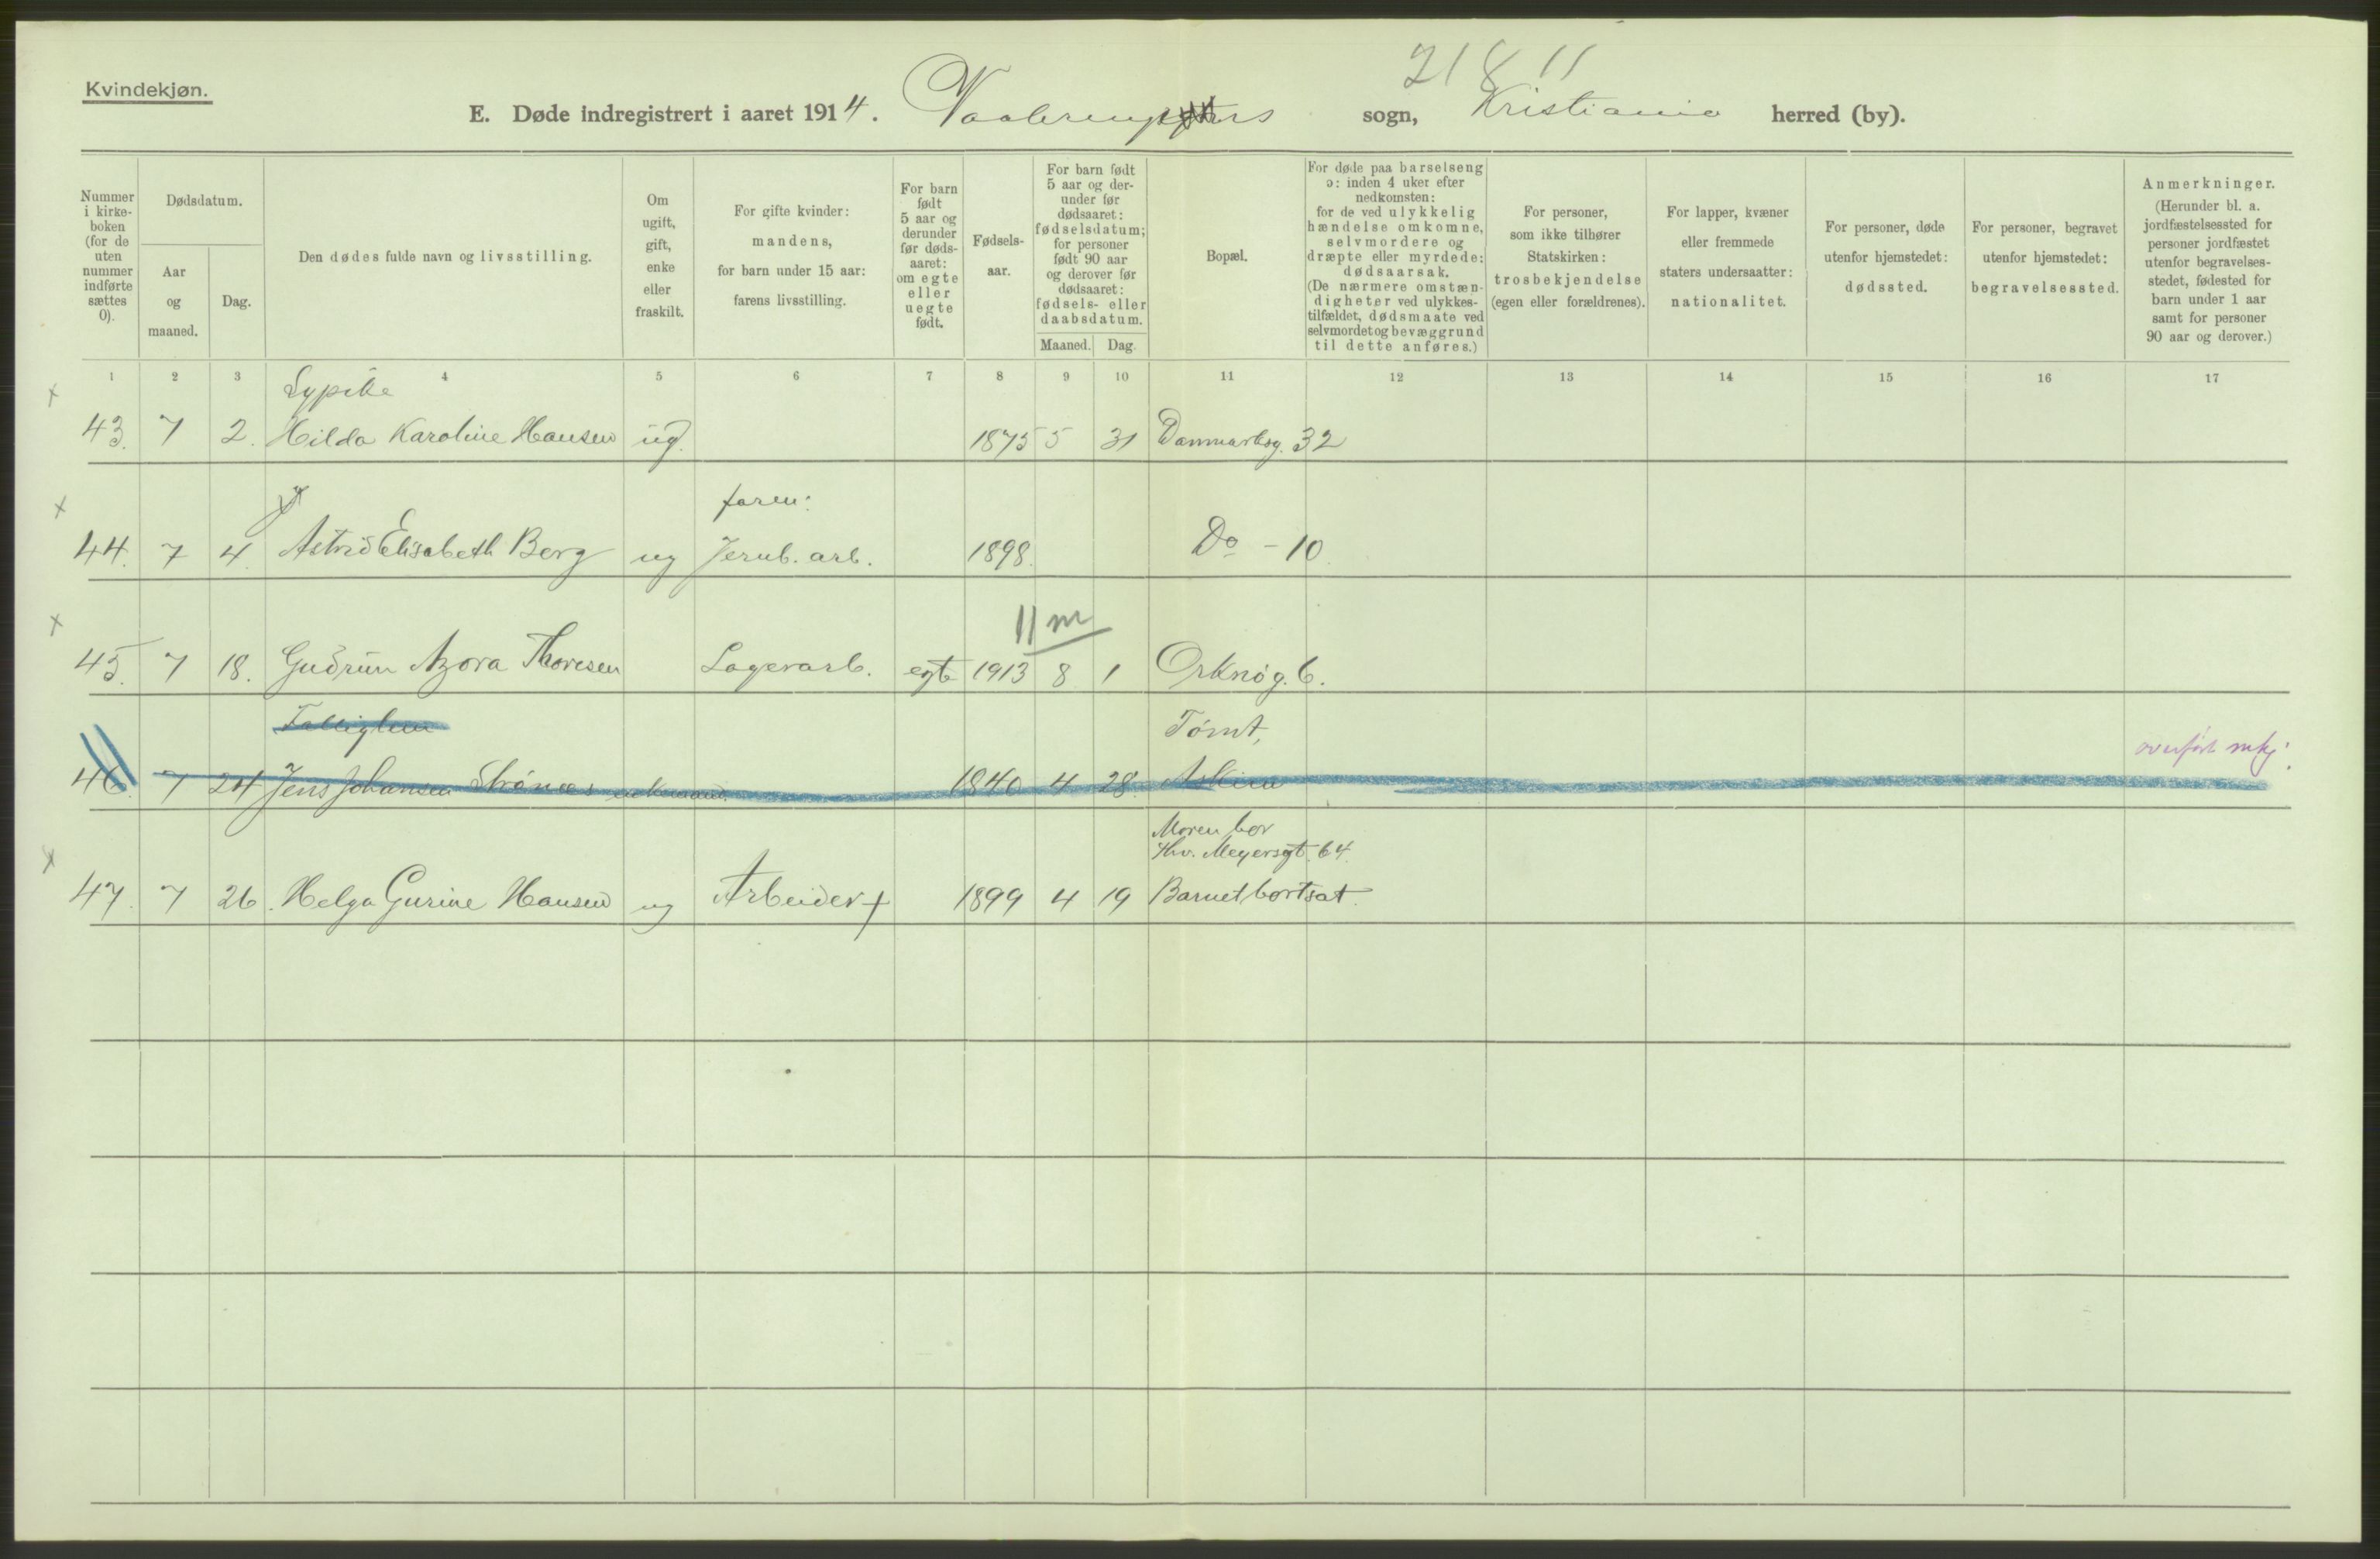 218 11
Kvindekjøn.
E. Døde indregistrert i aaret 1914. sogn, Kristiania herred (by).
Nummer
i kirke-
boken
(for de
uten
nummer
indførte
sættes
0).
Dødsdatum.
Aar
og
maaned.
Dag.
Den dødes fulde navn og livsstilling.
Om
ugift,
gift,
enke
eller
fraskilt.
For gifte kvinder:
mandens,
for barn under 15 aar:
farens livsstilling.
For barn
født
5 aar og
derunder
før døds-
aaret:
om egte
eller
uegte
født.
Fødsels-
aar.
For barn født
5 aar og der-
under før
dødsaaret:
fødselsdatum;
for personer
født 90 aar
og derover før
dødsaaret:
fødsels- eller
daabsdatum.
Maaned. Dag.
Bopæl.
For døde paa barselseng
ɔ: inden 4 uker efter
nedkomsten:
for de ved ulykkelig
hændelse omkomne,
selvmordere og
dræpte eller myrdede:
dødsaarsak.
(De nærmere omstæn-
digheter ved ulykkes-
tilfældet, dødsmaate ved
selvmordet og bevæggrund
til dette anføres.)
For personer,
som ikke tilhører
Statskirken:
trosbekjendelse
(egen eller forældrenes).
For lapper, kvæner
eller fremmede
staters undersaatter:
nationalitet.
For personer, døde
utenfor hjemstedet:
dødssted.
For personer, begravet
utenfor hjemstedet:
begravelsessted.
Anmerkninger.
(Herunder bl. a.
jordfæstelsessted for
personer jordfæstet
utenfor begravelses-
stedet, fødested for
barn under 1 aar
samt for personer
90 aar og derover.)
1 2 3 4 5 6 7 8 9 10 11 12 13 14 15 16 17
x Sypike
43. 7 2. Hilda Karoline Hansen ug. 1875 5 31 Danmarksg. 32
x faren:
44. 7 4. Astrid Elisabeth Berg ug Jernb. arb. 1898. Do - 10
x 11 m
45. 7 18. Gudrun Azora Thoresen Lagerarb. egte 1913 8 1 Orknøg. 6.
Tømt,
overført mkj.
46. 7 24 Jens Johansen Strønæs enkemand. 1840 4 28 Askim
Moren bor
Thv. Meyersgt. 64.
x 47. 7 26. Helga Gurine Hansen ug Arbeider + 1899 4 19 Barnet bortsat.